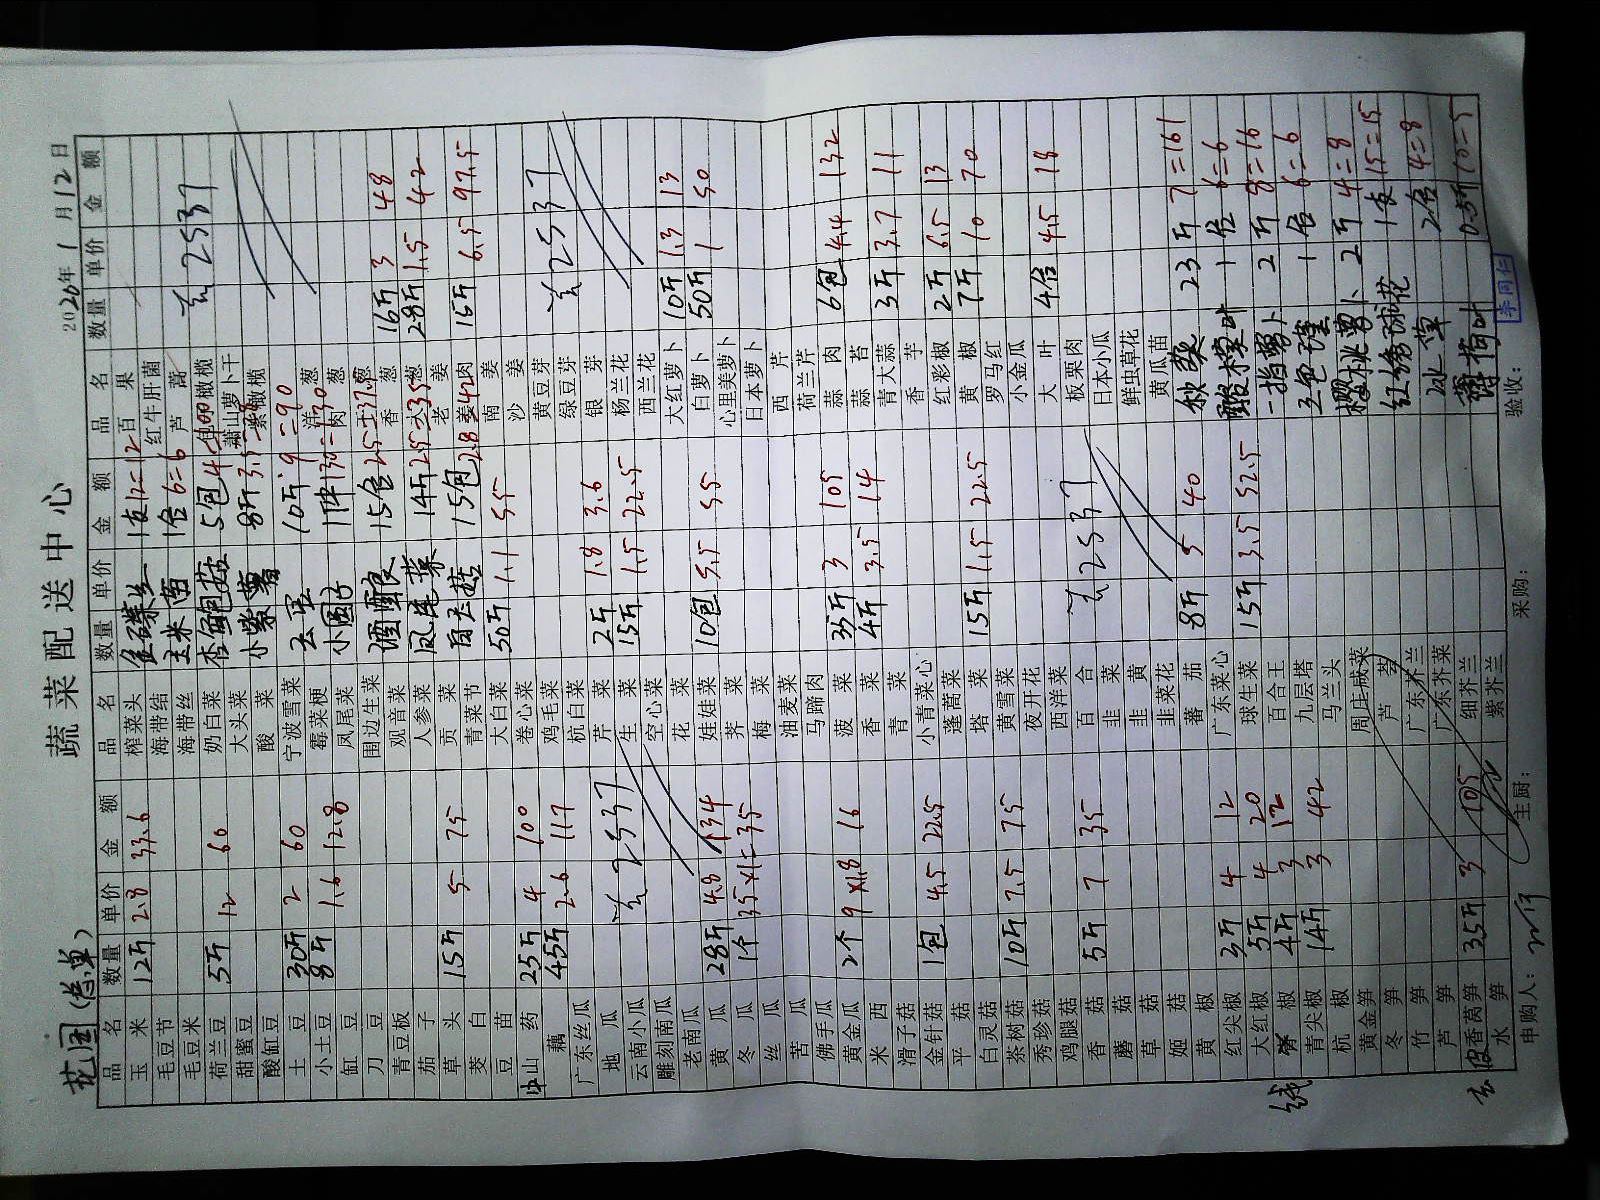 蔬菜配送中心
花园(总单) 2026年1月12日
品名 数量 单价 金额 品名 数量 单价 金额 品名 数量 单价 金额
玉米 12斤 2.8 33.6 榨菜头 金碟丝 1支 12=12 百果
毛豆节 海带结 玉米苗 1合 6=6 红牛肝菌
毛豆米 海带丝 芦蒿 去2537
荷兰豆 5斤 12 60 奶白菜 杏鲍菇 5包 橄榄
甜蜜豆 大头菜 萧山萝卜干
酸缸豆 酸菜 小紫薯 8斤 3.5 橄榄
土豆 30斤 2 60 宁波雪菜 去豆 10斤 9=90
小土豆 8斤 1.6 12.8 霉菜梗 小圆子 洋葱
缸豆 凤尾菜 肉葱
刀豆 围边生菜 酒酿 15合 25 葱
青豆板 观音菜 香葱 16斤 3 48
茄子 人参菜 凤尾菜 14斤 2.5=35 葱 28斤 1.5 42
草头 15斤 5 75 贡菜 老姜 15斤 6.5 97.5
茭白 青菜节 白灵菇 15包 2.8=42 姜肉
豆苗 大白菜 50斤 1.1 55 南姜
山药 25斤 4 100 卷心菜 沙姜
藕 45斤 2.6 117 鸡毛菜 黄豆芽 去2537
广东丝瓜 杭白菜 绿豆芽
地瓜 去2537 芹菜 2斤 1.8 3.6 银芽
云南小瓜 生菜 15斤 1.5 22.5 杨兰花
雕刻南瓜 空心菜 西兰花
老南瓜 花菜 大红萝卜 10斤 1.3 13
黄瓜 28斤 4.8 134 娃娃菜 10包 5.5 55 白萝卜 50斤 1 50
冬瓜 1个 35×1=35 荠菜 心里美萝卜
丝瓜 梅菜 日本萝卜
苦瓜 油麦菜 西芹
佛手瓜 马蹄肉 荷兰芹
黄金瓜 2个 9×1.8 16 菠菜 35斤 3 105 蒜肉 6包 4.4 132
米西 香菜 4斤 3.5 14 蒜苔
滑子菇 青菜 青大蒜 3斤 3.7 11
金针菇 1包 4.5 22.5 小青菜心 香芋
平菇 蓬蒿菜 红彩椒 2斤 6.5 13
白灵菇 塔菜 15斤 1.5 22.5 黄椒 7斤 10 70
茶树菇 10斤 7.5 75 黄雪菜 罗马红
秀珍菇 夜开花 小金瓜
鸡腿菇 西洋菜 大叶 4合 4.5 18
香菇 5斤 7 35 百合 去2537 板栗肉
蘑菇 韭菜 日本小瓜
草菇 韭黄 鲜虫草花
姬菇 韭菜花 黄瓜苗
黄椒 蕃茄 8斤 5 40 秋葵 23斤 7=161
红尖椒 3斤 4 12 广东菜心 酸模叶 1合 6=6
大红椒 5斤 4 20 球生菜 15斤 3.5 52.5 一指萝卜 2斤 8=16
线椒 4斤 3 12 百合王 三色堇 1合 6=6
青尖椒 14斤 3 42 九层塔 樱桃萝卜 2斤 4=8
杭椒 马兰头 红绣球花 1支 15=15
黄金笋 周庄咸菜 冰草 2合 4=8
冬笋 薄荷叶 0.5斤 10=5
竹笋 广东芥兰
芦笋 广东芥菜
去皮香莴笋 35斤 3 105 细芥兰
水笋 紫芥兰
申购人： 主厨： 采购： 验收： 李同仁